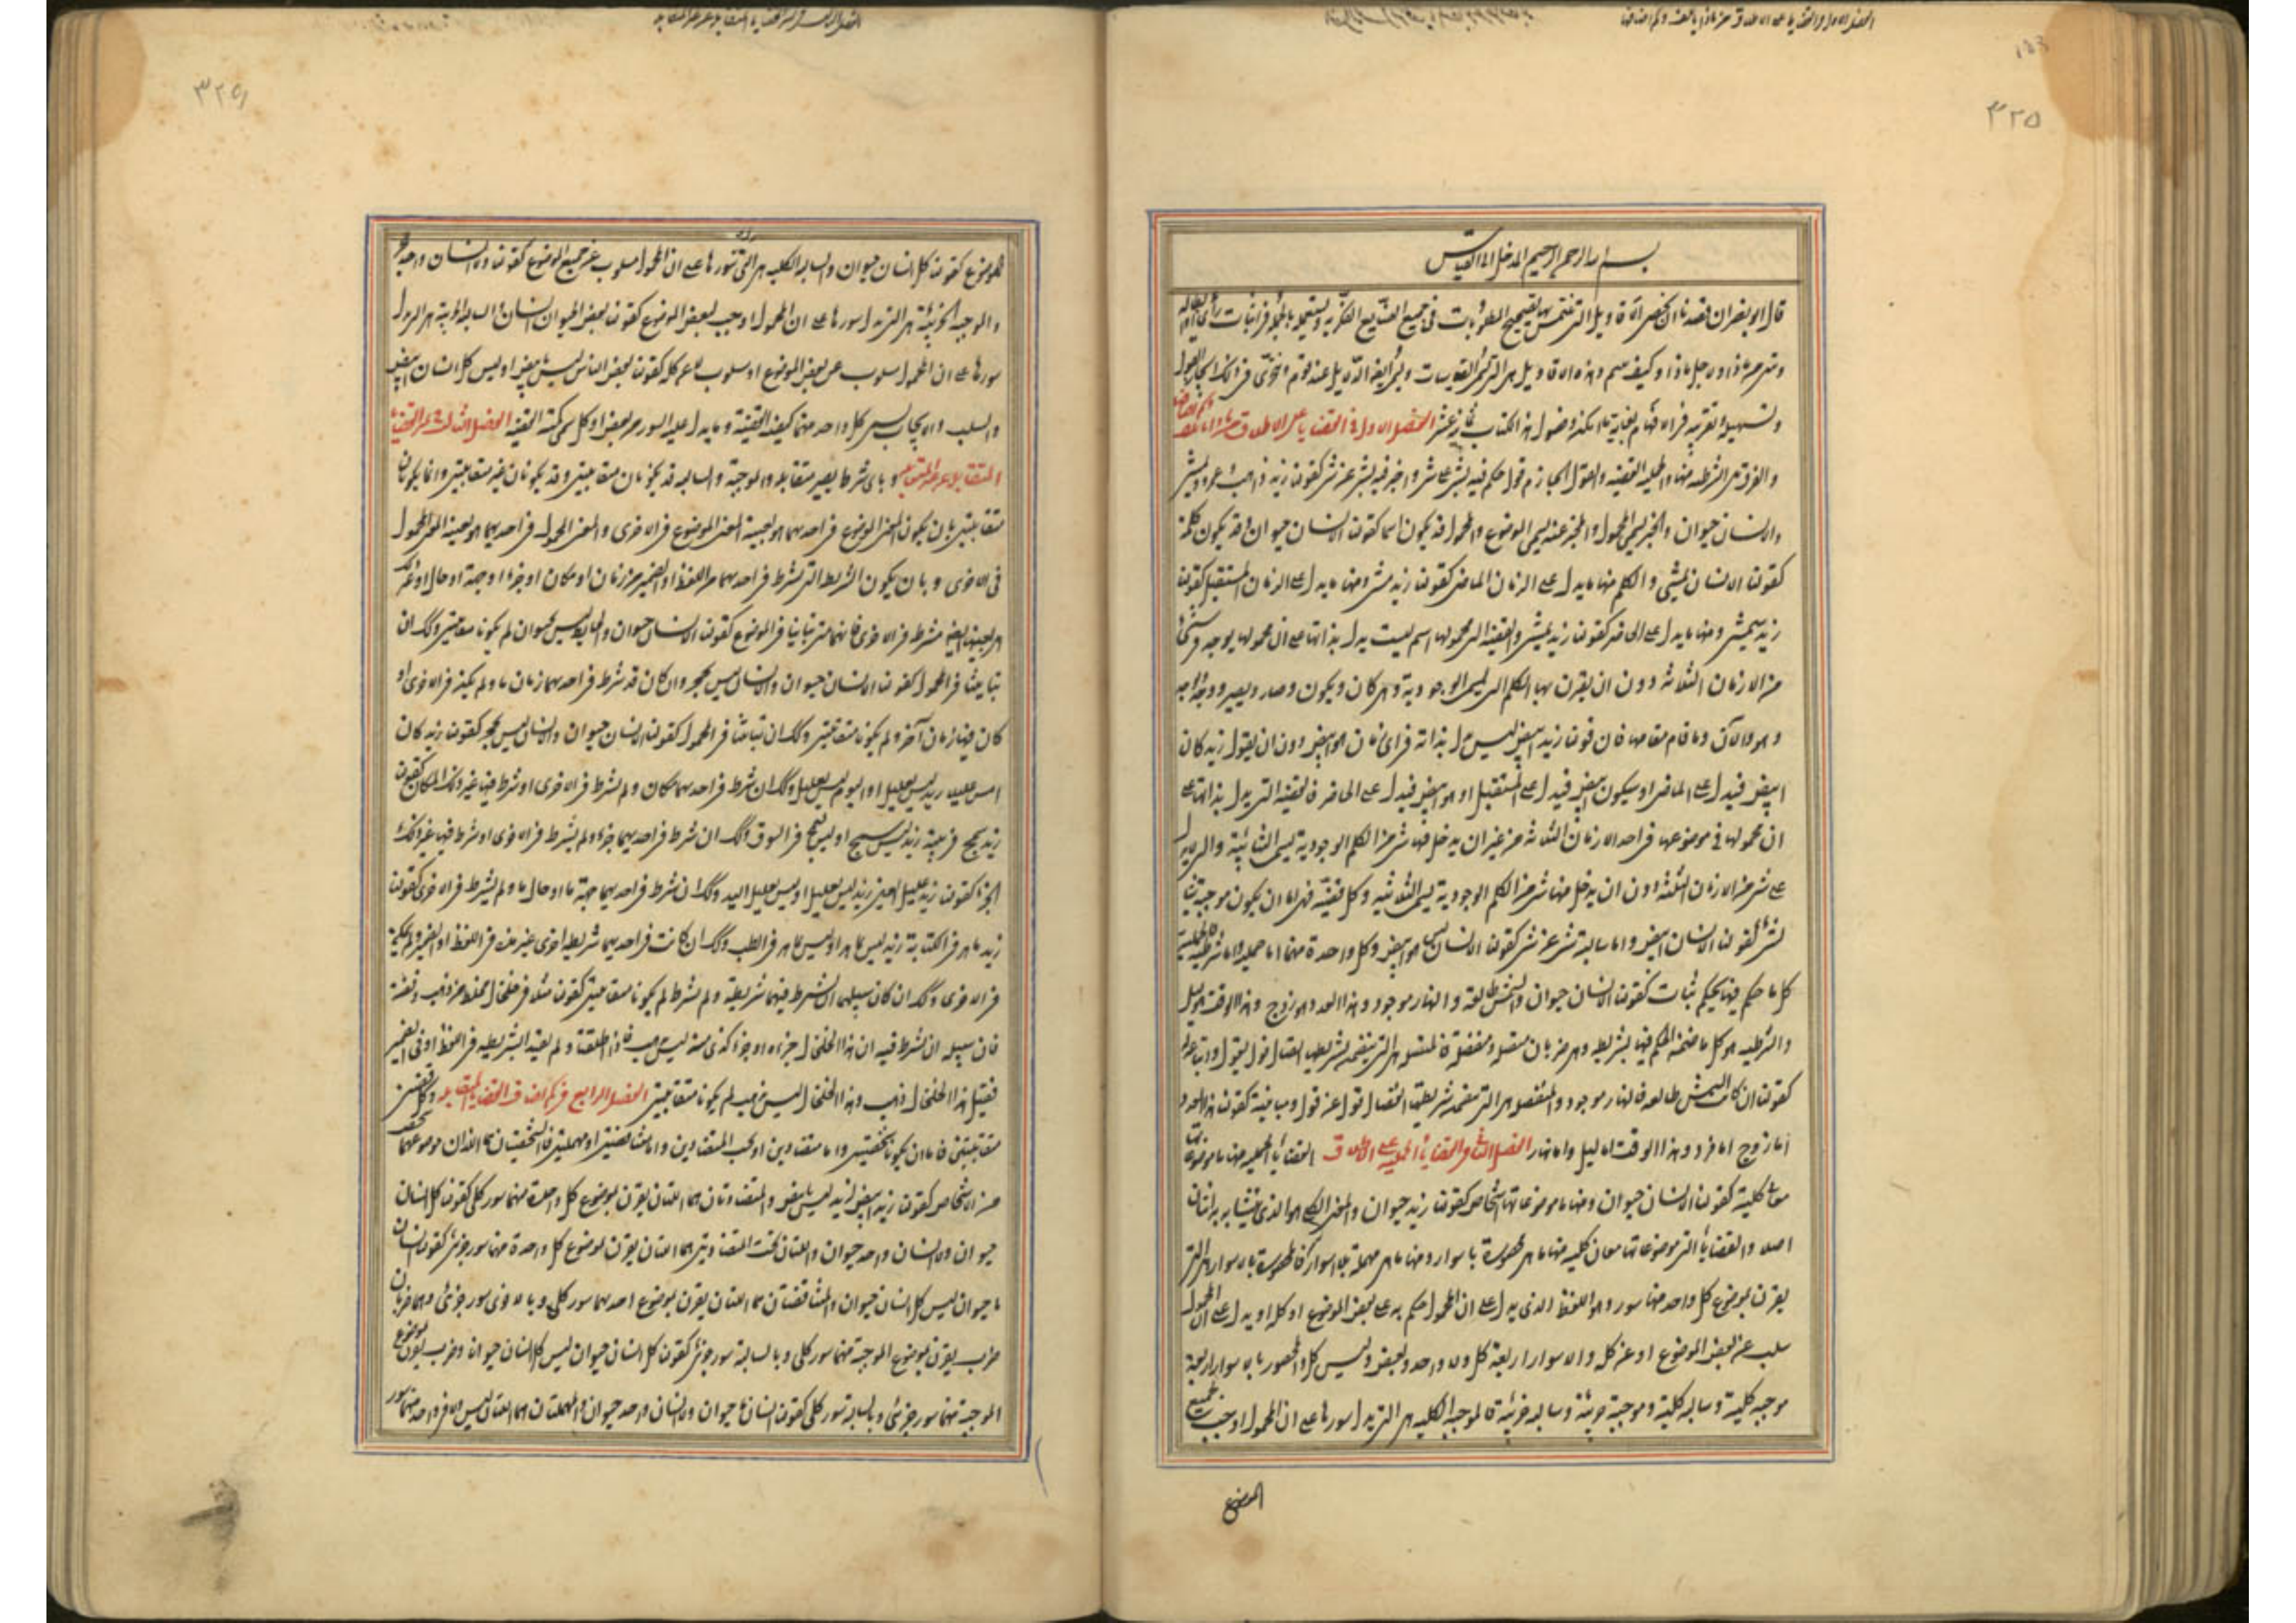 بسم الله الرحمن الرحيم المدخل الى القياس
قال ابو نصر ان قصدنا ان نحصر الاقاويل التى نلتمس بها تصحيح المطلوبات فى جميع الصنايع الفكرية ويستعملها فى اثبات راى او ابطاله
ومم هى ولاجل ماذا وكيف هى وهذه الاقاويل هى التى تسمى القياسات وتسمى ايضا الدلايل عند قوم ونتوخى فى ذلك ايجاز القول
وتسهيله وتقريبه فى الافهام بغاية ما يمكننا وفصول هذا الكتاب عشر الفصل الاول فى القضايا على الاطلاق
والفرق بين الشرطيه منها والحمليه القضيه والقول الجازم قول حكم فيه بشى على شى واخبر فيه بشى عن شى كقولنا زيد ذاهب عمرو يمشى
والانسان حيوان والخبر يسمى المحمول والمخبر عنه يسمى الموضوع والمحمول قد يكون اسما كقولنا الانسان حيوان وقد يكون كلمة
كقولنا الانسان يمشى والكلم منها ما يدل على الزمان الماضى كقولنا زيد مشى ومنها ما يدل على الزمان المستقبل كقولنا
زيد سيمشى ومنها ما يدل على الحاضر كقولنا زيد يمشى والقضيه التى محمولها اسم ليست تدل بذاتها على ان محمولها يوجد فى شى
من الازمان الثلاثه دون ان يقرن بها الكلم التى تسمى الوجودية وهى كان ويكون وصار ويصير ووجد
وهو والآن وما قام مقامها فان قولنا زيد ابيض ليس يدل بذاته فى اى زمان هو ابيض دون ان يقول زيد كان
ابيض فيدل على الماضى او سيكون ابيض فيدل على المستقبل او هو ابيض فيدل على الحاضر فالقضية التى يدل بذاتها على
ان محمولها فى موضوعها فى احد الازمان الثلاثه من غير ان يدخل فيها شى من الكلم الوجودية تسمى الثنائية والتى لا يدل
على شى من الازمان الثلثة دون ان يدخل منها شى من الكلم الوجودية تسمى الثلاثيه وكل قضية فهى اما ان يكون موجبة شيئا
لشئ كقولنا الانسان ابيض واما سالبة شى عن شى كقولنا الانسان ليس هو ابيض وكل واحدة منهما اما حمليه واما شرطيه فالحملية
كل ما حكم فيها بحكم بثات كقولنا الانسان حيوان والشمس طالعة والنهار موجود وهذا العدد هو زوج وهذا الوقت هو ليل
والشرطيه هو كل ما ضمن الحكم فيها بشريطه وهى ضربان متصله ومنفصلة فالمتصله هى التى يتضمنه شريطتها اتصال قول بقول
كقولنا ان كانت الشمس طالعه فالنهار موجود والمنفصله هى التى متضمنه شريطتها انفصال قول عن قول ومباينة كقولنا هذا العدد
اما زوج اما فرد وهذا الوقت اما ليل واما نهار الفصل الثانى فى القضايا الحمليه على الاطلاق القضايا الحمليه منها ما موضوعاتها
معانى كلية كقولنا الانسان حيوان ومنها ما موضوعاتها اشخاص كقولنا زيد حيوان والمعنى الكلى هو الذى يتشابه به اثنان
اصلا والقضايا التى موضوعاتها معان كليه منها ما هى محصورة باسوار ومنها ما هى مهملة بلا اسوار فالمحصورة باسوار هى التى
يقرن بموضوع كل واحد منها سور وهو اللفظ الذى يدل على ان المحمول حكم به على بعض الموضوع او كله او يدل على ان المحمول
سلب عن بعض الموضوع او عن كل والاسوار اربعة كل ولا واحد وبعض وليس كل والمحصور بالاسوار اربعة
موجبه كلية وسالبه كلية وموجبة جزئية وسالبه جزئية فالموجبه الكليه هى التى يدل سورها على ان المحمول اوجب لجميع
الموضوع
الموضوع كقولنا كل انسان حيوان والسالبه الكليه هى التى سورها على ان المحمول مسلوب عن جميع الموضوع كقولنا ولا انسان واحد
والموجبه الجزئية هى التى يدل سورها على ان المحمول اوجب لبعض الموضوع كقولنا بعض الحيوان انسان والسالبه الجزئية هى التى يدل
سورها على ان المحمول مسلوب عن بعض الموضوع او مسلوب لا عن كل كقولنا بعض الناس ليس بابيض او ليس كل انسان ابيض
والسلب والايجاب يسمى كل واحد منهما كيفية القضية وما يدل عليه السور من بعض او كل يسمى كمية القضيه الفصل الثالث فى القضايا
المتقابله وباى شرط يصير متقابله والموجبة والسالبه قد يكونان متقابلتين وقد يكونان غير متقابلتين وانما يكونان
متقابلتين بان يكون المعنى الموضوع فى احديهما هو بعينه المعنى الموضوع فى الاخرى والمعنى المحمول فى احديهما هو بعينه المعنى المحمول
فى الاخرى وبان يكون الشريطة التى تشرط فى احديهما من اللفظ او الضمير من زمان او مكان او جزء او جهة او حال او غير ذلك
هى بعينها ايضا تشرط فى الاخرى فانهما متى تباينا فى الموضوع كقولنا الانسان حيوان والحايط ليس بحيوان لم يكونا متقابلتين وكذلك ان
تباينتا فى المحمول كقولنا الانسان حيوان والانسان ليس بحجر وان كان قد شرط فى احديهما زمان ما ولم يكن فى الاخرى او
كان فيها زمان آخر لم يكونا متقابلتين وكذلك ان تباينتا فى المحمول كقولنا الانسان حيوان والانسان ليس بحجر كقولنا زيد كان
امس عليلا زيد ليس بعليل او اليوم ليس بعليل وكذلك ان شرط فى احديهما مكان ولم يشرط فى الاخرى او شرط فيها غير ذلك المكان كقولنا
زيد يسبح فى بيته زيد ليس يسبح او ليس يسبح فى السوق وكذلك ان شرط فى احديهما جزء ولم يشرط فى الاخرى او شرط فيها غير ذلك
الجزء كقولنا زيد عليل العين زيد ليس بعليل او ليس بعليل اليد وكذلك ان شرط فى احديهما جهة ما او حال ما ولم يشرط فى الاخرى كقولنا
زيد ماهر فى الكتابة زيد ليس بماهر او ليس بماهر فى الطب وكذلك ان كانت فى احديهما شريطه اخرى غير هذه فى اللفظ او الضمير ولم يكن
فى الاخرى وكذلك ان كان سبيلهما ان يشرط فيهما شريطه ولم يشرط لم يكونا متقابلتين كقولنا مثلا فى خلخال مختلط من ذهب وفضة
فان سبيله ان يشرط فيه ان هذا الخلخال جزءه او جزء كذى منه ليس بذهب فاذا اطلقتا ولم يقيد الشريطه فى اللفظ او فى الضمير
فقيل هذا الخلخال ذهب وهذا الخلخال ليس بذهب لم يكونا متقابلتين الفصل الرابع فى كم اصناف القضايا المتقابله وكل قضيتين
متقابلتين فاما ان يكونا شخصيتين واما متضادتين او تحت المتضادتين واما متناقضتين او مهملتين فالشخصيتان هما اللذان موضوعهما شخص
من الاشخاص كقولنا زيد ابيض زيد ليس بابيض والمتضادتان هما اللتان يقرن بموضوع كل واحدة منهما سور كلى كقولنا كل انسان
حيوان ولا انسان واحد حيوان واللتان تحت المتضادتين هما اللتان يقرن بموضوع كل واحدة منهما سور جزئى كقولنا انسان
ما حيوان ليس كل انسان حيوان والمتناقضتان هما اللتان يقرن بموضوع احديهما سور كلى وبالاخرى سور جزئى وهما ضربان
ضرب يقرن بموضوع الموجبة منهما سور كلى وبالسالبة سور جزئى كقولنا كل انسان حيوان ليس كل انسان حيوانا وضرب يقرن بموضوع
الموجبة منهما سور جزئى وبالسالبه سور كلى كقولنا انسان ما حيوان ولا انسان واحد حيوان والمهملتان هما اللتان ليس يقرن بواحد منهما سور